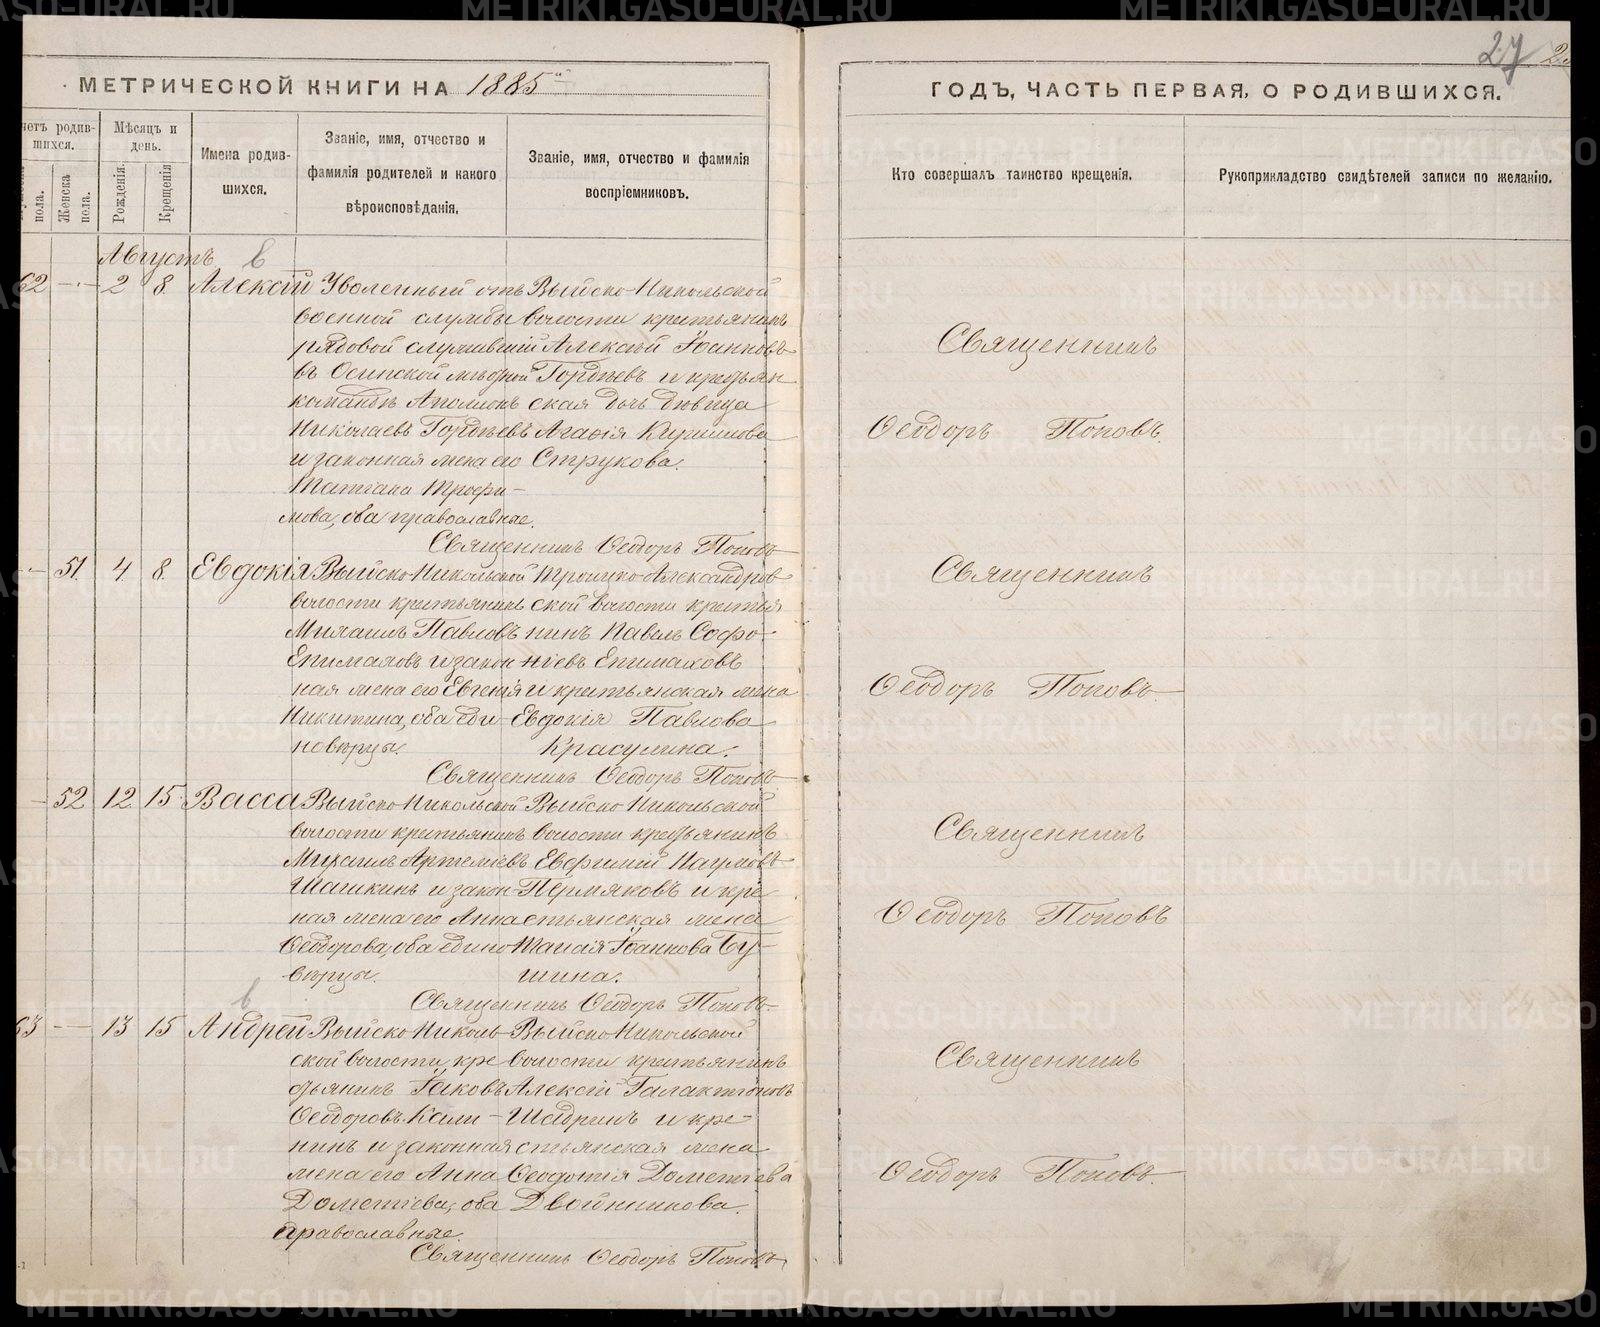 27
МЕТРИЧЕСКОЙ КНИГИ НА 1885й
ГОДЪ, ЧАСТЬ ПЕРВАЯ, О РОДИВШИХСЯ.
четъ родив-
шихся.
пола.
Женска
пола.
Мѣсяцъ и
день.
Рожденія.
Крещенія
Имена родив-
шихся.
Званіе, имя, отчество и
фамилія родителей и какого
вѣроисповѣданія.
Званіе, имя, отчество и фамилія
воспріемниковъ.
Кто совершалъ таинство крещенія.
Рукоприкладство свидѣтелей записи по желанію.
Августъ
62 — 2 8. Алексій
Уволенный отъ
военной службы
рядовой служившій
въ Осинской мѣстной
командѣ Аполлонъ
Николаевъ Гордѣевъ
и законная жена его
Татіана Трофи-
мова, оба православные.
Выйско-Никольской
волости крестьянинъ
Алексій Іоанновъ
Гордѣевъ и крестьян
ская дочь дѣвица
Агафія Кириллова
Струкова.
Священникъ Ѳеодоръ Поповъ
Священникъ
Ѳеодоръ Поповъ.
— 51. 4 8. Евдокія
Выйско-Никольской
волости крестьянинъ
Михаилъ Павловъ
Епимаховъ и закон
ная жена его Евгенія
Никитина, оба еди
новѣрцы.
Троицко-Александров
ской волости крестья
нинъ Павелъ Софо-
ніевъ Епимаховъ
и крестьянская жена
Евдокія Павлова
Красулина.
Священникъ Ѳеодоръ Поповъ
Священникъ
Ѳеодоръ Поповъ
— 52 12 15. Васса
Выйско-Никольской
волости крестьянинъ
Михаилъ Артеміевъ
Шашкинъ и закон-
ная жена его Анна
Ѳеодорова, оба едино
вѣрцы.
Выйско-Никольской
волости крестьянинъ
Евфимій Наумовъ
Пермяковъ и кре
стьянская жена
Таисія Іоаннова Бу-
шина.
Священникъ Ѳеодоръ Поповъ
Священникъ
Ѳеодоръ Поповъ
63 — 13 15 Андрей
Выйско-Николь-
ской волости, кре
стьянинъ Іаковъ
Ѳеодоровъ Кали-
нинъ и законная
жена его Анна
Дометіева, оба
православные.
Выйско-Никольской
волости крестьянинъ
Алексій Галактіоновъ
Шадринъ и кре-
стьянская жена
Ѳеодотія Дометіева
Двойникова.
Священникъ Ѳеодоръ Поповъ
Священникъ
Ѳеодоръ Поповъ.
METRIKI.GASO-URAL.RU